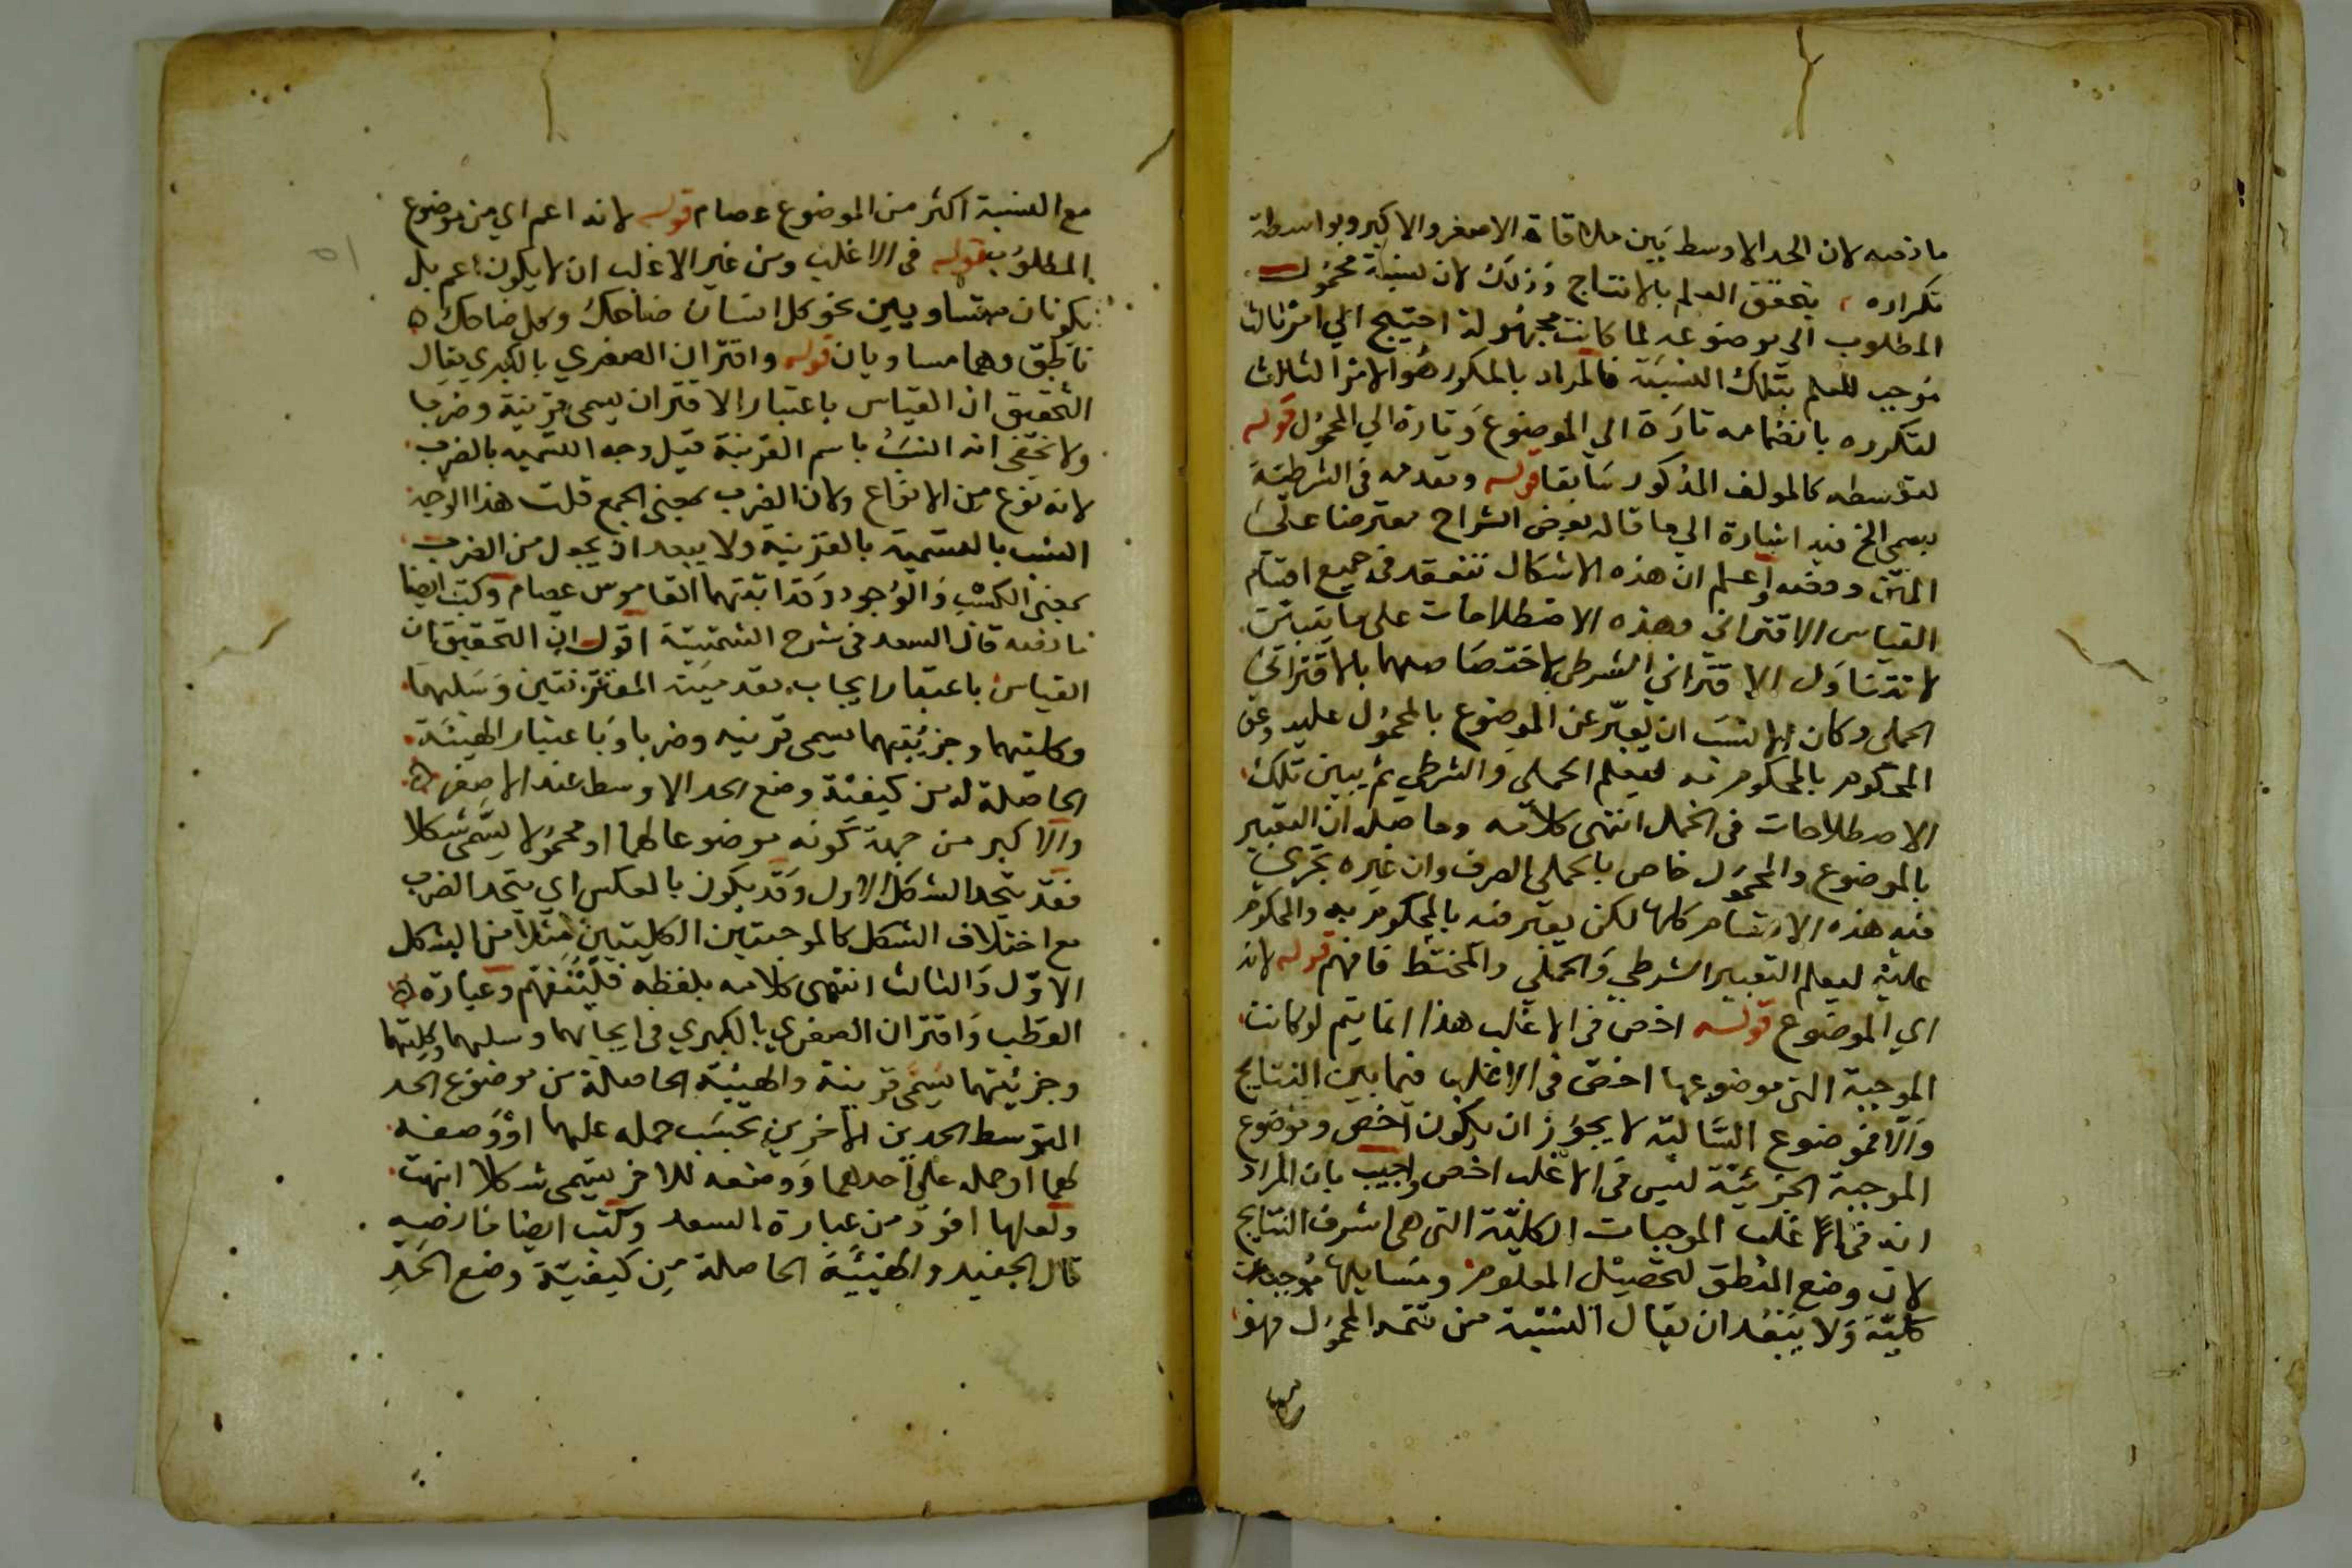 ما نصه لان الحد الاوسط بين ملاقاة الاصغر والاكبر وبواسطة
تكراره يتحقق العلم بالانتاج وذلك لان نسبة محمول
المطلوب الى موضوعه لما كانت مجهولة احتيج الي امر ثالث
موجب للعلم بتلك النسبة فالمراد بالمكرر هو الامر الثالث
لتكرره بانضمامه تارة الي الموضوع وتارة الي المحمول قوله
لتوسطه كالمولف المذكور سابقا قوله ومقدمه في الشرطية
يسمى الخ فيه اشارة الي ما قاله بعض الشراح معترضا على
المتن ونصه واعلم ان هذه الاشكال تنعقد في جميع اقسام
القياس الاقتراني وهذه الاصطلاحات على ما
لا تتناول الاقتراني الشرطي لاختصاصهما بالاقتراني
الحملي وكان الانسب ان يعبر عن الموضوع بالمحكوم عليه وعن
المحكوم بالمحكوم به ليعلم الحملي والشرطي ثم يبين تلك
الاصطلاحات في الحمل انتهى كلامه وحاصله ان التعبير
بالموضوع والمحمول خاص بالحملي الصرف وان غيره تجري
فيه هذه الاقسام كلها لكن يعبر فيه بالمحكوم به والمحكوم
عليه ليعلم التعبير الشرطي والحملي والمختلط فافهم قوله لانه
اي الموضوع قوله اخص في الاغلب هذا انما يتم لو كانت
الموجبة التي موضوعها اخص في الاغلب فيما بين النتايج
والا فموضوع السالبة لا يجوز ان يكون اخص وموضوع
الموجبة الجزئية ليس في الاغلب اخص واجيب بان المراد
انه في الاغلب الموجبات الكلية التي هي اشرف النتايج
لان وضع المنطق لتحصيل العلوم ومسايلها موجبات
كلية ولا يبعد ان يقال النسبة من تتمة المحمول فهو
مع النسبة اكثر من الموضوع عصام قوله لانه اعم اي من موضوع
المطلوب قوله في الاغلب ومن غير الاغلب ان لا يكون اعم بل
يكونان متساويين نحو كل انسان ضاحك وكل ضاحك
ناطق وهما مساويان قوله واقتران الصغري بالكبري يقال
التحقيق ان القياس باعتبار الاقتران يسمى قرينة وضربا
ولا يخفى انه انسب باسم القرينة قيل وجه التسميه بالضرب
لانه نوع من الانواع ولان الضرب بمعنى الجمع قلت هذا الوجه
انسب بالتسمية بالقرينة ولا يبعد ان يجعل من الضرب
بمعنى الكسب والوجود وقد اثبتهما القاموس عصام وكتب ايضا
ما نصه قال السعد في شرح الشمسية اقول ان التحقيق ان
القياس باعتبار ايجاب مقدميته المقترنتين وسلبهما
وكليتهما وجزئيتهما يسمى قرينه وضربا وباعتبار الهيئة
الحاصلة له من كيفية وضع الحد الاوسط عند الاصغر
والاكبر من جهة كونه موضوعا لهما او محمولا يسمى شكلا
فقد يتحد الشكل الاول وقد يكون بالعكس اي يتحد الضرب
مع اختلاف الشكل كالموجبتين الكليتين مثلا من الشكل
الاول والثالث انتهى كلامه بلفظه فليتفهم وعبارة
القطب واقتران الصغري بالكبري في ايجابهما وسلبهما وكليتهما
وجزئيتهما يسمى قرينة والهيئة الحاصلة من موضوع الحد
المتوسط الحدين الاخرين بحسب حمله عليهما او وضعه
لهما او حمله على احدهما ووضعه للاخر يسمى شكلا انتهت
ولعلها اقود من عبارة السعد وكتب ايضا ما نصه
قال الجفيد والهيئة الحاصلة من كيفية وضع الحد